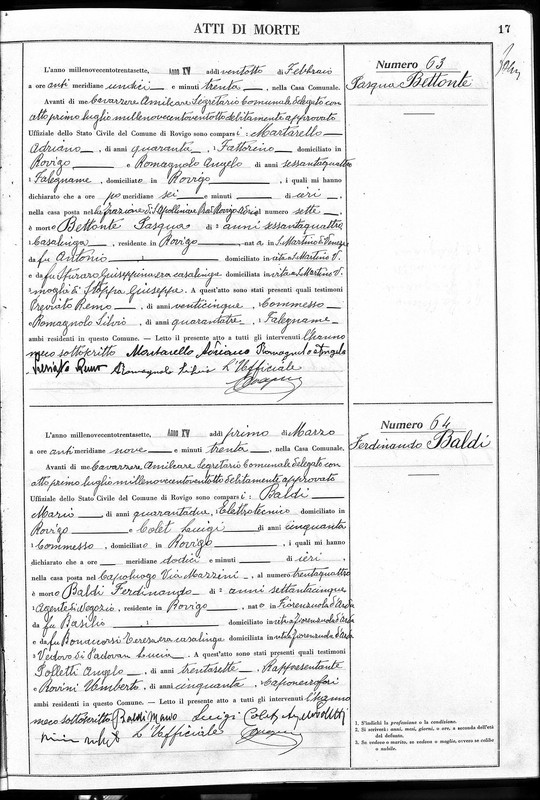 ATTI DI MORTE
17
Numero 63
Pasqua Bettonte
L'anno millenovecentotrentasette, Anno XV addi ventotto di Febbraio
a ore anti meridiane undici e minuti trenta, nella Casa Comunale.
Avanti di me Cavarzere Amilcare Segretario Comunale delegato con
atto primo luglio millenovecentoventotto debitamente approvato
Uffiziale dello Stato Civile del Comune di Rovigo sono comparsi: Martarello
Adriano, di anni quaranta, Fattorino domiciliato in
Rovigo e Romagnolo Angelo di anni sessantaquattro
Falegname, domiciliato in Rovigo, i quali mi hanno
dichiarato che a ore po meridiane sei e minuti di ieri,
nella casa posta nella frazione di S. Apollinare al numero sette,
è morta Bettonte Pasqua di anni sessantaquattro
Casalinga, residente in Rovigo, nata in S. Martino di Venezze
da fu Antonio domiciliato in vita in S. Martino V.
e da fu Sturaro Giuseppina era casalinga domiciliata in vita in S. Martino V.
moglie di Stoppa Giuseppe. A quest'atto sono stati presenti quali testimoni
Previato Remo, di anni venticinque Commesso
Romagnolo Silvio di anni quarantatre, Falegname
ambi residenti in questo Comune. — Letto il presente atto a tutti gli intervenuti l'hanno
meco sottoscritto Martarello Adriano Romagnolo Angelo
Previato Remo Romagnolo Silvio L'Ufficiale
Numero 64
Ferdinando Baldi
L'anno millenovecentotrentasette, Anno XV addi primo di Marzo
a ore anti meridiane nove e minuti trenta, nella Casa Comunale.
Avanti di me Cavarzere Amilcare Segretario Comunale delegato con
atto primo luglio millenovecentoventotto debitamente approvato
Uffiziale dello Stato Civile del Comune di Rovigo sono comparsi: Baldi
Mario di anni quarantadue, Elettrotecnico domiciliato in
Rovigo e Colet Luigi di anni cinquanta
Commesso, domiciliato in Rovigo, i quali mi hanno
dichiarato che a ore meridiane dodici e minuti di ieri,
nella casa posta nel Capoluogo Via Mazzini, al numero trentaquattro
è morto Baldi Ferdinando di anni settantacinque
Agente di Negozio, residente in Rovigo, nato in Fiorenzuola d'Arda
da fu Basilio domiciliato in vita in Fiorenzuola d'Arda
e da fu Bonacorsi Teresa era casalinga domiciliata in vita in Fiorenzuola d'Arda
Vedovo di Padovan Lucia. A quest'atto sono stati presenti quali testimoni
Polletti Angelo di anni trentasette, Rappresentante
Rovini Umberto, di anni cinquanta,
ambi residenti in questo Comune. — Letto il presente atto a tutti gli intervenuti l'hanno
meco sottoscritto Baldi Mario Luigi Colet
L'Ufficiale
1. S'indichi la professione o la condizione.
2. Si scriverà: anni, mesi, giorni, o ore, a seconda dell'età
del defunto.
3. Se vedovo o marito, se vedova o moglie, ovvero se celibe
o nubile.